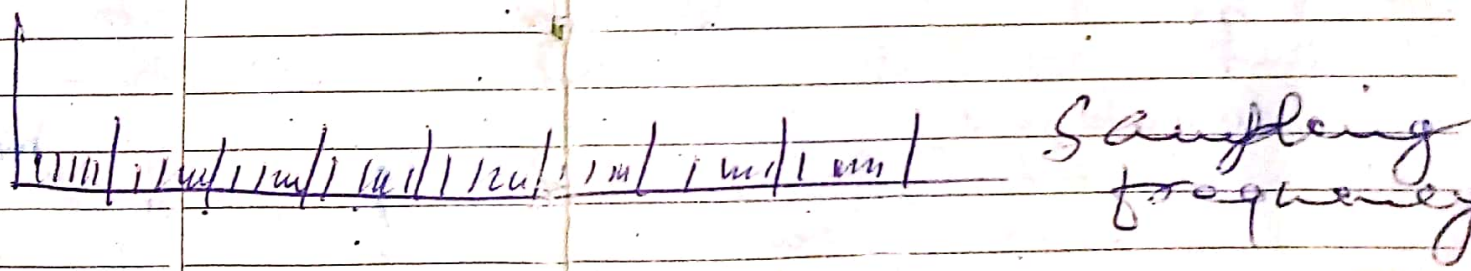 Sampling
frequency